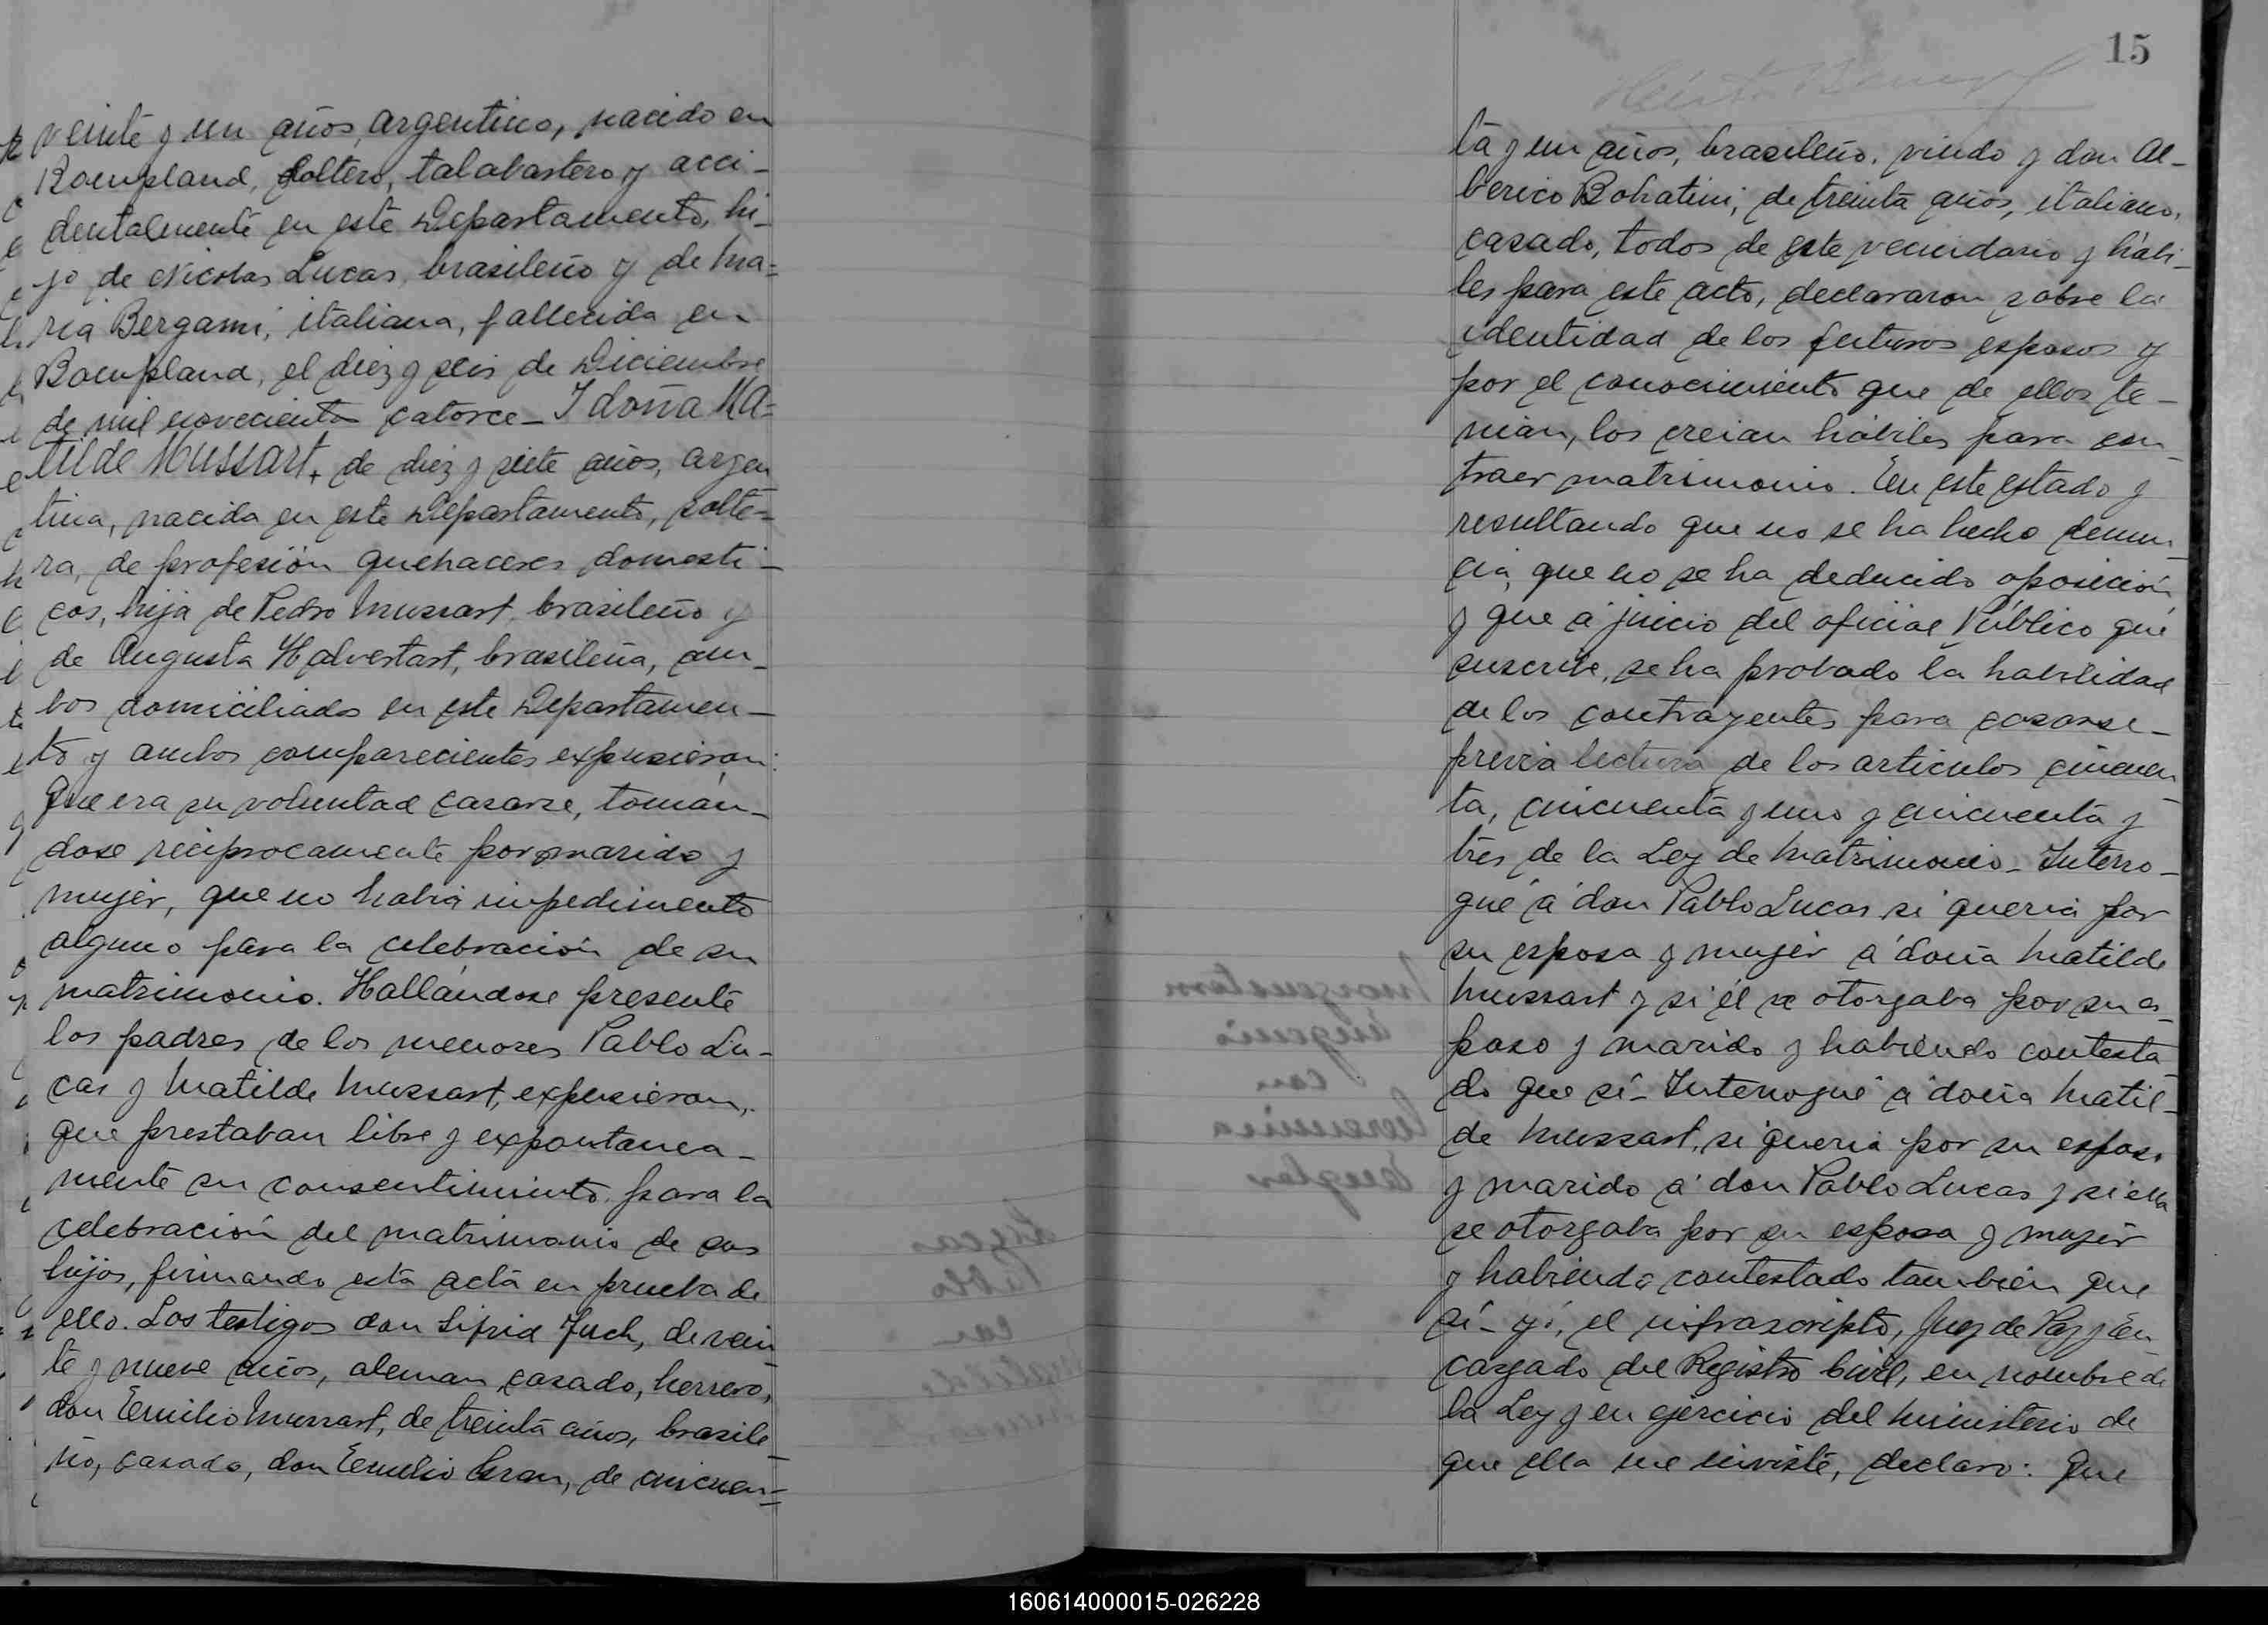 veinte y un años, argentino, nacido en
Bompland, soltero, talabartero y acci-
dentalmente en este Departamento, hi-
jo de Nicolas Lucas, brasileño y de Ma=
ria Bergami, italiana, fallecida en
Bompland, el diez y seis de Diciembre
de mil novecientos catorce_ I doña MA=
tilde Mussart, de diez y siete años, argen
tina, nacida en este Departamento, solte-
ra, de profesión quehaceres domesti-
cos, hija de Pedro Mussart, brasileño y
de Augusta Halvertart, brasileña, am-
bos domiciliados en este Departamen-
to y ambos comparecientes expusieron:
Que era su voluntad casarse, tomán-
dose reciprocamente por marido y
mujer, que no habia impedimento
alguno para la celebración de su
matrimonio. Hallándose presente
los padres de los menores Pablo Lu-
cas y Matilde Mussart, expusieron,
que prestaban libre y expontanea-
mente su consentimiento para la
celebración del matrimonio de sus
hijos, firmando esta acta en prueba de
ello. Los testigos don Sifrid Juch, de vein
te y nueve años, aleman casado, herrero,
don Emilio Mussart, de treinta años, brasile
ño, casado, don Emilio , de cincuen=
15
ta y un años, brasileño, viudo y don Al-
berico Bohatini, de treinta años, italiano,
casado, todos de este vecindario y hábi-
les para este acto, declararon sobre la
identidad de los futuros esposos y
por el conocimiento que de ellos te-
nian, los creian hábiles para con
traer matrimonio. En este estado y
resultando que no se ha hecho denun-
cia, que no se ha deducido oposición
y que á juicio del oficial Público que
suscribe, se ha probado la habilidad
de los contrayentes para casarse-
previa lectura de los articulos cincuen
ta, cincuenta y uno y cincuenta y
tres de la Ley de Matrimonio_ Interro-
gué á don Pablo Lucas si queria por
su esposa y mujer á doña Matilde
Mussart y si él se otorgaba por su es-
poso y marido y habiendo contesta
do que sí_ Interrogué á doña Matil-
de Mussart, si queria por su esposo
y marido á don Pablo Lucas y si ella
se otorgaba por su esposa y mujer
y habiendo contestado también que
sí_ yó, el infrascripto, Juez de Paz y En
cargado del Registro Civil, en nombre de
la Ley y en ejercicio del Ministerio de
que ella me inviste, declaro: Que
160614000015-026228